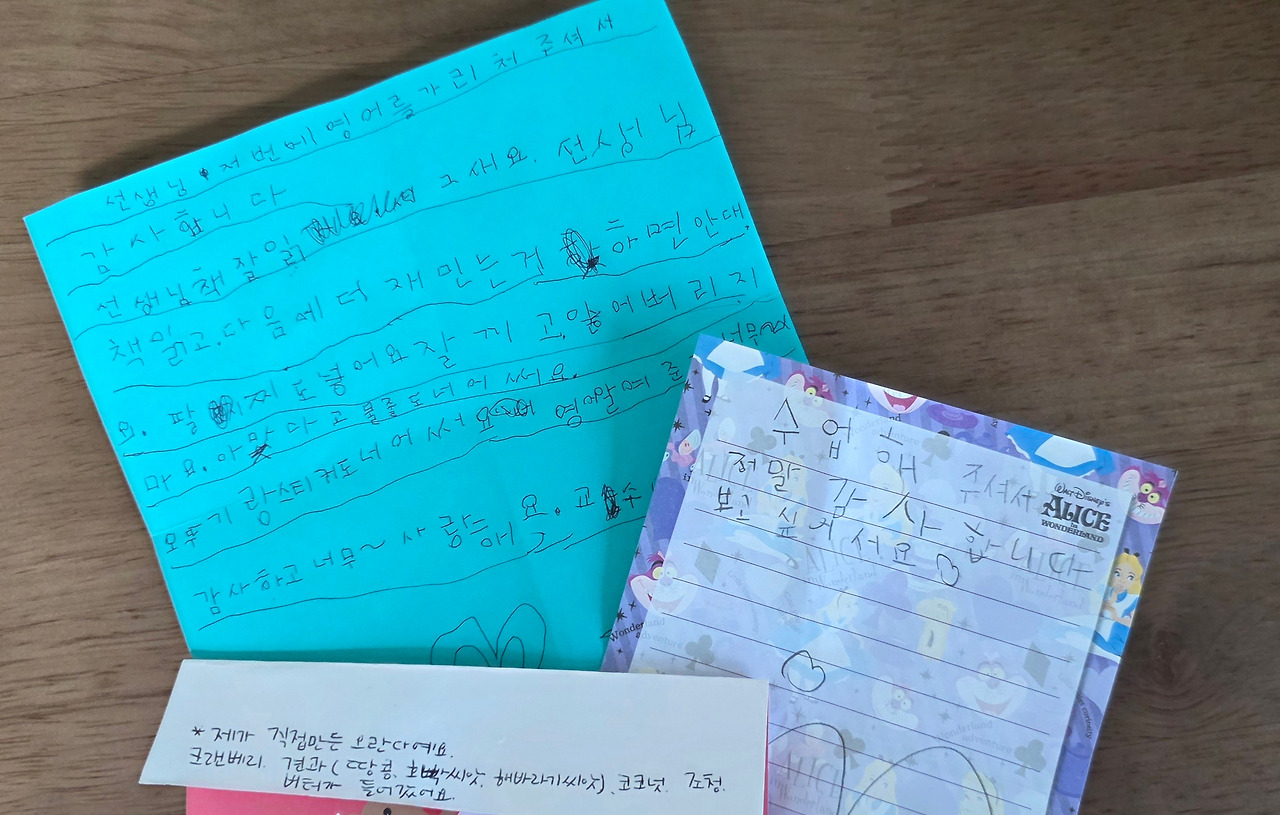 선생님 저번에영어를가리처 주셔서
감사합니다
선생님책잘읽 그새요. 선생님
책읽고.다음에더재민는거 하면안대
요. 팔찌도넣어요잘끼고,잃어버리지
마요.아 다고 줄도너어써요.
랑스티커도너어써요 영말며 너무~
감사하고너무~사랑해요.
수업해 주셔서
정말 감사합니다
보고 싶에서요
WALT DISNEY'S
ALICE
IN
WONDERLAND
Wonderland
adventure
* 제가 직접만든 오란다예요.
크랜베리. 견과(땅콩, 호박씨앗, 해바라기씨앗).코코넛. 조청.
버터가 들어갔어요.